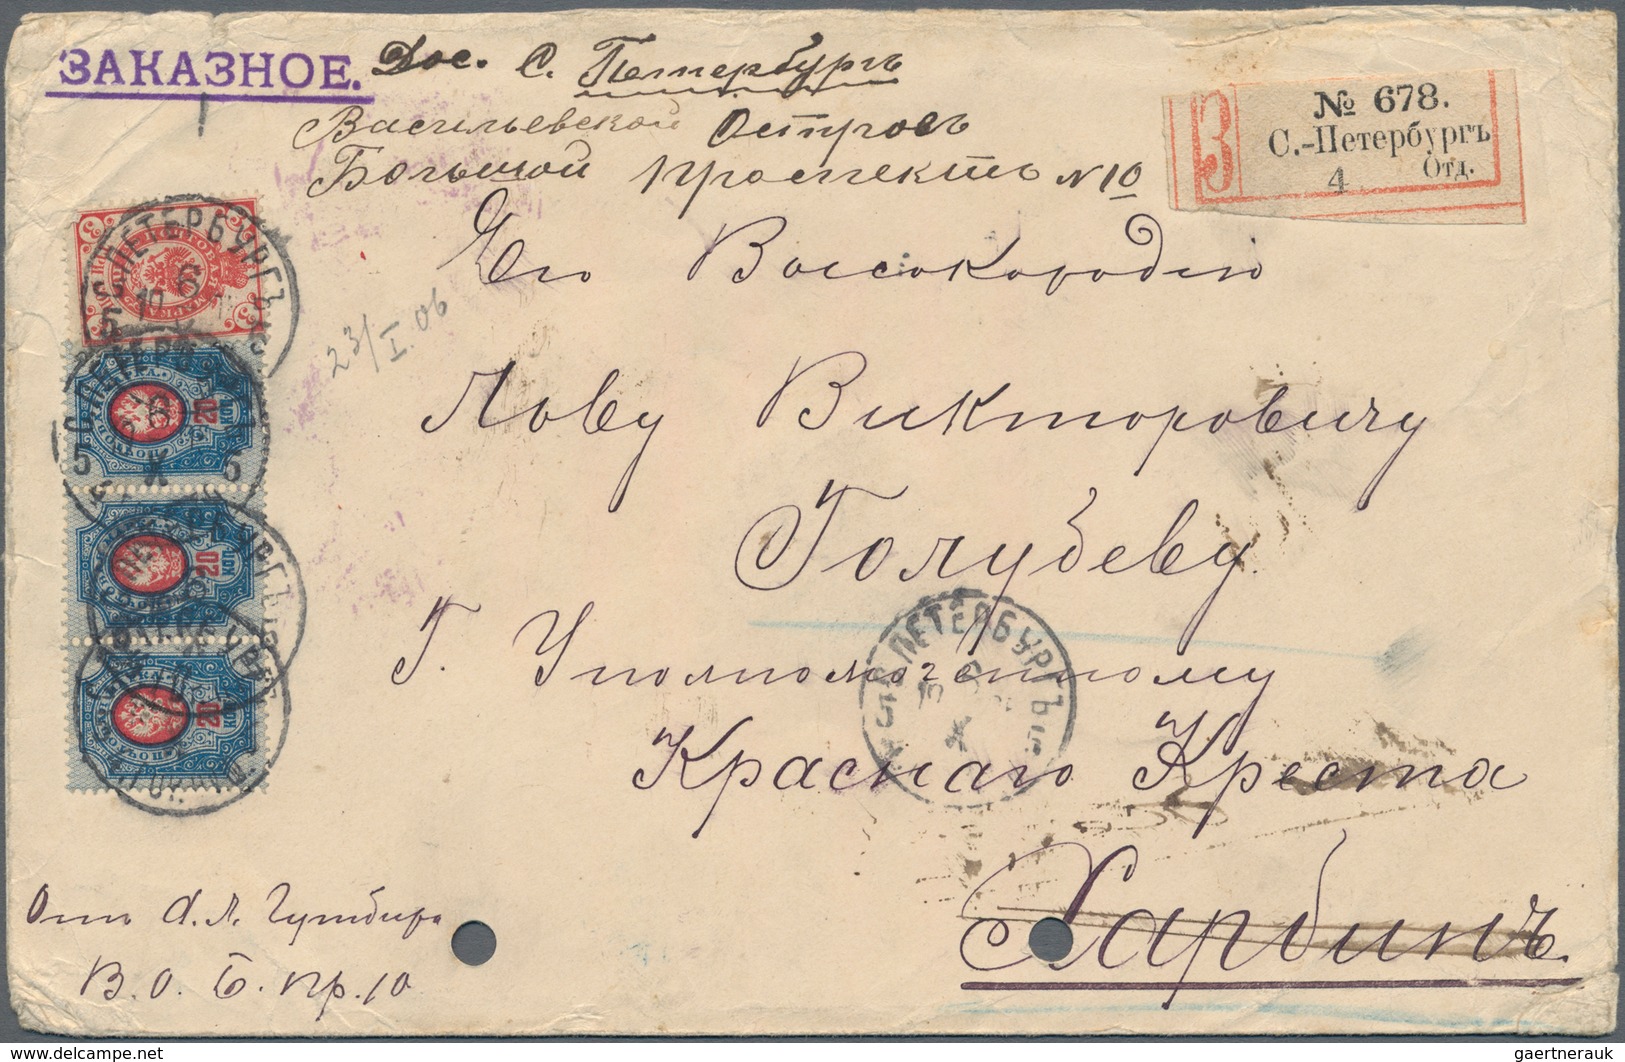 ЗАКАЗНОЕ.
Дос. С. Петербургъ
Васильевской Островъ
Большой проспектъ N 10
З
№ 678.
С.-Петербургъ
4 Отд.
Его Высокородію
Льву Викторовичу
Голубеву
Г. Уполномоченному
Краснаго Креста
Харбинъ.
23/I.06
С.ПЕТЕРБУРГЪ
5 5
С.ПЕТЕРБУРГЪ
Отъ А. Л.
В. О. Б. пр. 10
delcampe.net
gaertnerauk